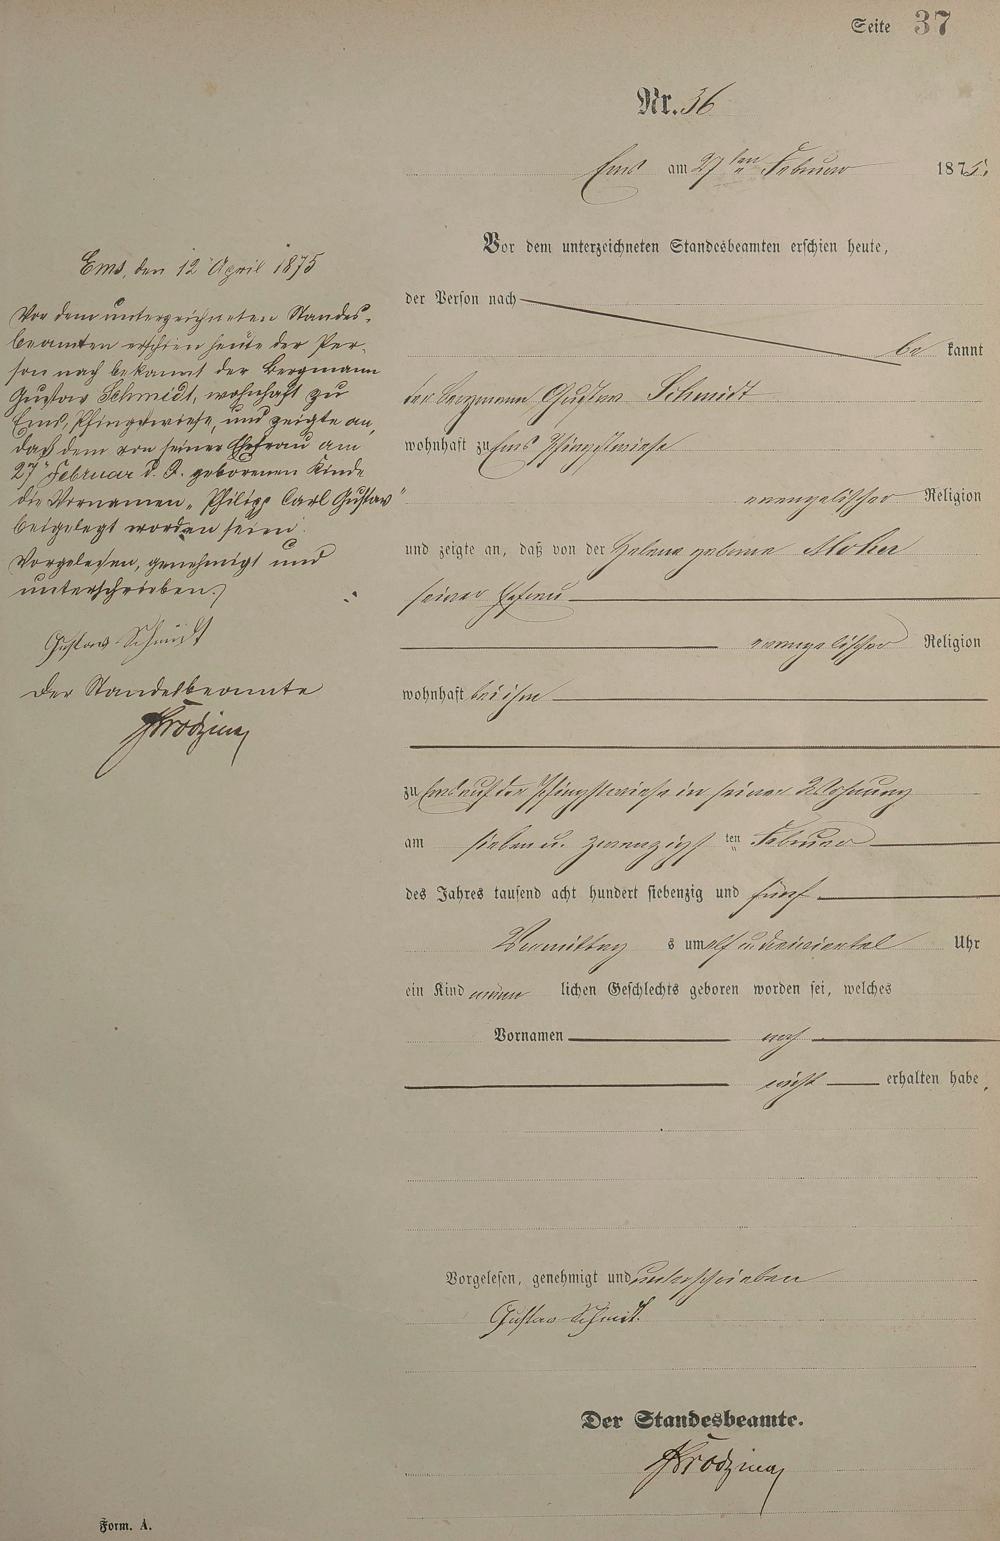 Seite 37
Nr. 36
Ems am 27 ten Februar 1875.
Vor dem unterzeichneten Standesbeamten erschien heute,
der Person nach
be kannt
der Bergmann Gustav Schmidt
wohnhaft zu Ems Pfingstwiese
evangelischer Religion
und zeigte an, daß von der Helene geborene
seiner Ehefrau
evangelischer Religion
wohnhaft bei ihm
zu Ems auf der Pfingstwiese in seiner Wohnung
am sieben u. zwanzigsten Februar
des Jahres tausend acht hundert siebenzig und fünf
Vormittag s um elf u. dreiviertel Uhr
ein Kind männ lichen Geschlechts geboren worden sei, welches
Vornamen noch
nicht erhalten habe.
Vorgelesen, genehmigt und unterschrieben
Gustav Schmidt
Der Standesbeamte.
Form. A.
Ems, den 12 April 1875
Vor dem unterzeichneten Standes-
beamten erschien heute der Per-
son nach bekannt der Bergmann
Gustav Schmidt, wohnhaft zu
Ems, Pfingstwiese, und zeigte an,
daß dem von seiner Ehefrau am
27 Februar d. J. geborenen Kinde
die Vornamen „Philipp Carl Gustav"
beigelegt worden seien.
Vorgelesen, genehmigt und
unterschrieben.
Gustav Schmidt
Der Standesbeamte